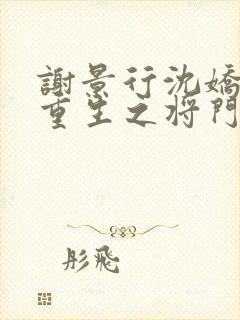 謝景行沈嬌
重生之將門
彤飛